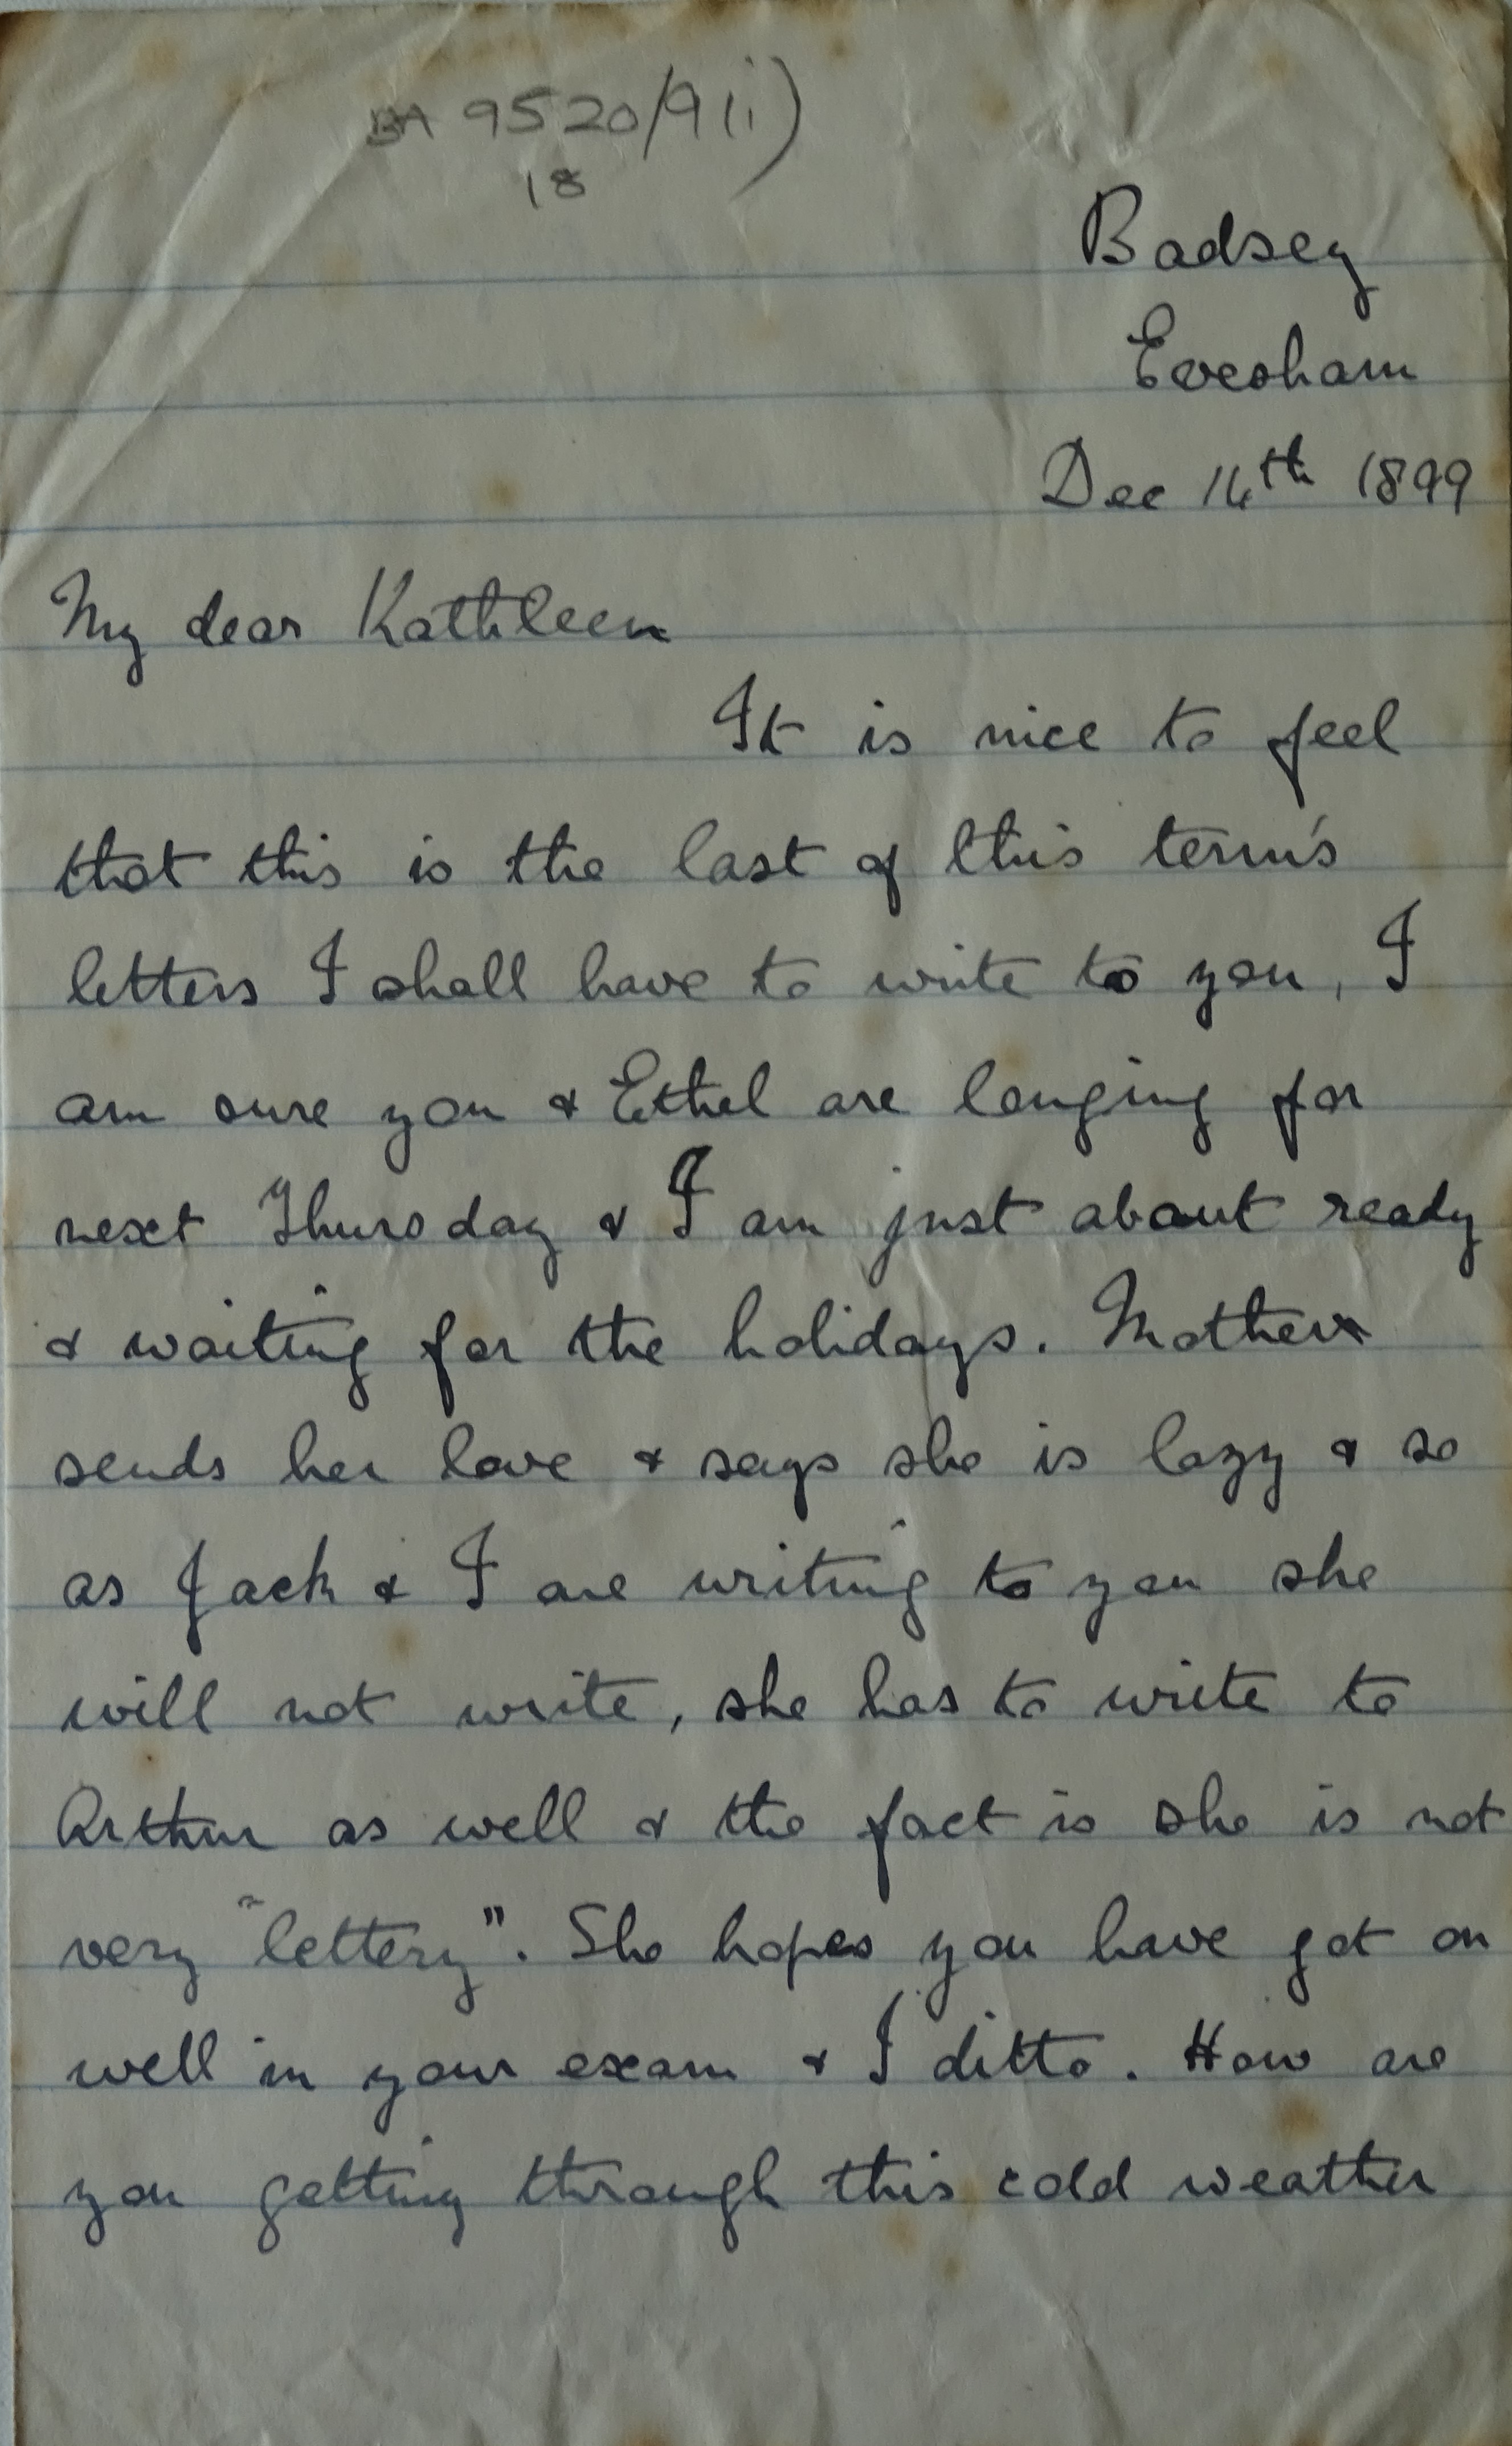 BA 9520/9(i)
18
Badsey
Evesham
Dec 14th 1899
My dear Kathleen
It is nice to feel
that this is the last of this term's
letters I shall have to write to you, I
am sure you & Ethel are longing for
next Thursday & I am just about ready
& waiting for the holidays. Mother
sends her love & says she is lazy & so
as Jack & I are writing to you she
will not write, she has to write to
Arthur as well & the fact is she is not
very "lettery". She hopes you have got on
well in your exam & I ditto. How are
you getting through this cold weather